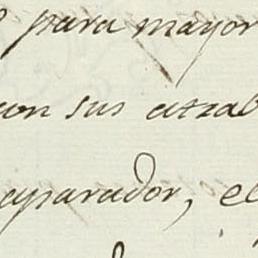 para mayor
con sus atzab
aparador, el